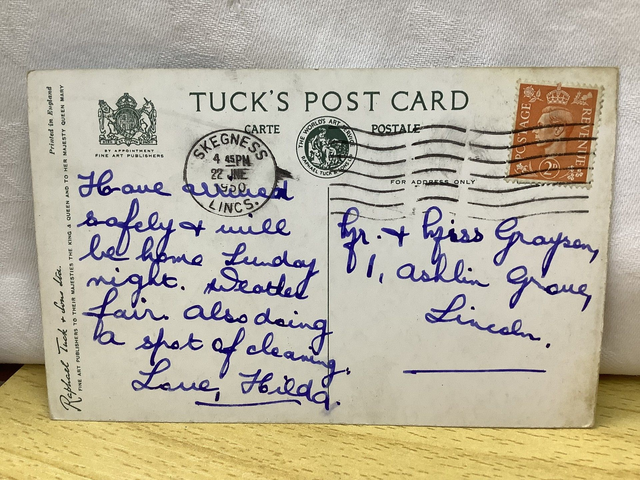 TUCK'S POST CARD
CARTE POSTALE
BY APPOINTMENT
FINE ART PUBLISHERS
THE WORLD'S ART SERVICE
RAPHAEL TUCK & SONS LTD
FOR ADDRESS ONLY
SKEGNESS
4 45PM
22 JNE
1950
LINCS.
POSTAGE
REVENUE
2D
Printed in England
Raphael Tuck & Sons Ltd.
FINE ART PUBLISHERS TO THEIR MAJESTIES THE KING & QUEEN AND TO HER MAJESTY QUEEN MARY
Have arrived
safely & will
be home Sunday
night. Weather
fair. Also doing
a spot of cleaning.
Love, Hilda.
Mr. & Miss Grayson,
1, Ashlin Grove,
Lincoln.